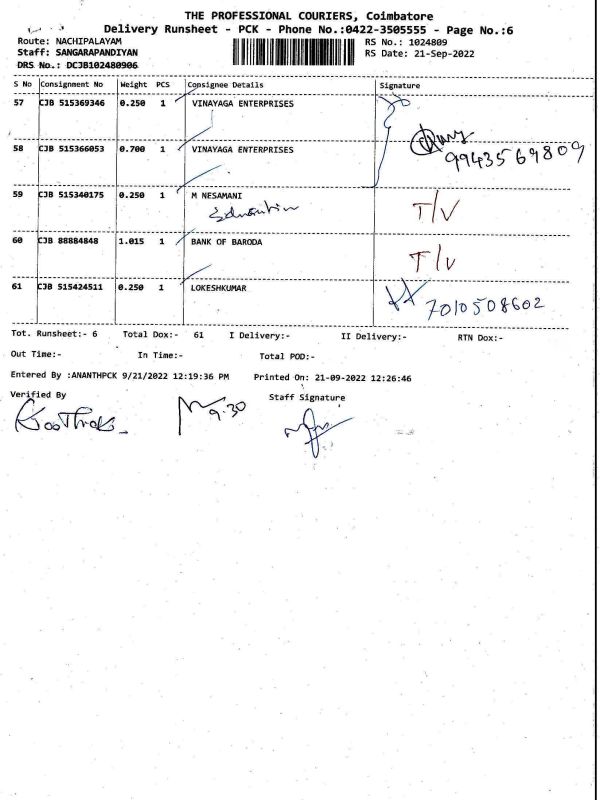 THE PROFESSIONAL COURIERS, Coimbatore
Delivery Runsheet - PCK - Phone No.:0422-3505555 - Page No.:6
Route: NACHIPALAYAM RS No.: 1024809
Staff: SANGARAPANDIYAN RS Date: 21-Sep-2022
DRS No.: DCJB102480906
S No Consignment No Weight PCS Consignee Details Signature
57 CJB 515369346 0.250 1 VINAYAGA ENTERPRISES
58 CJB 515366053 0.700 1 VINAYAGA ENTERPRISES
9943569809
59 CJB 515340175 0.250 1 M NESAMANI
T/V
60 CJB 88884848 1.015 1 BANK OF BARODA
T/V
61 CJB 515424511 0.250 1 LOKESHKUMAR
7010508602
Tot. Runsheet:- 6 Total Dox:- 61 I Delivery:- II Delivery:- RTN Dox:-
Out Time:- In Time:- Total POD:-
Entered By :ANANTHPCK 9/21/2022 12:19:36 PM Printed On: 21-09-2022 12:26:46
Verified By Staff Signature
9.30